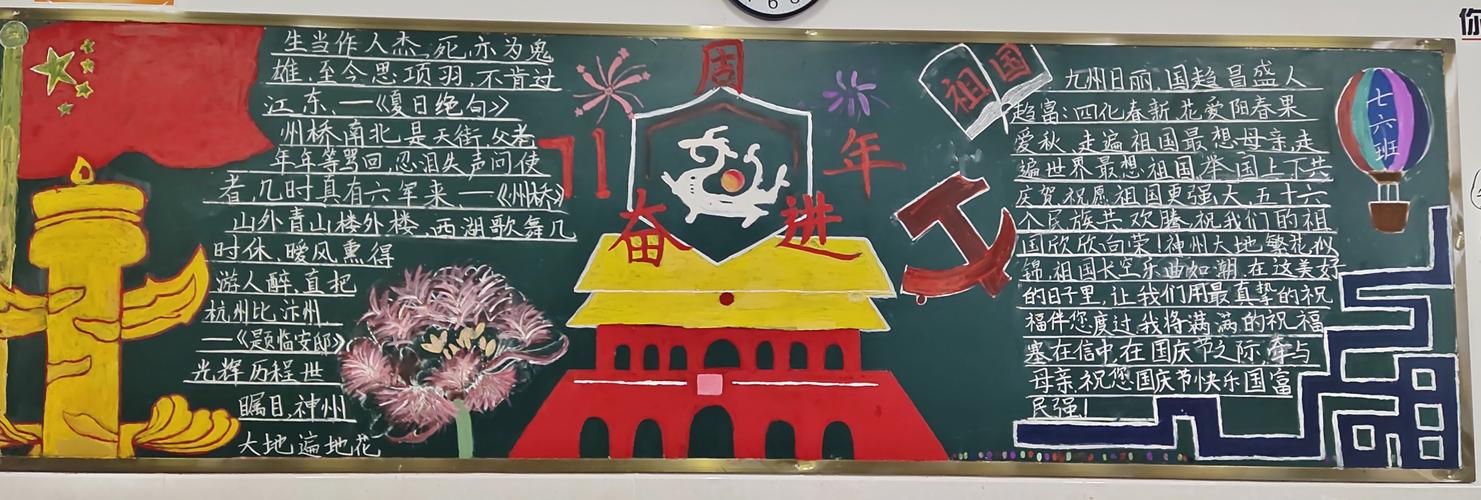 生当作人杰,死亦为鬼
雄,至今思项羽,不肯过
江东.—《夏日绝句》
州桥南北是天街,父老
年年等驾回,忍泪失声问使
者,几时真有六军来.—《州桥》
山外青山楼外楼,西湖歌舞几
时休,暖风熏得
游人醉,直把
杭州比汴州
—《题临安邸》
光辉历程世
瞩目,神州
大地遍地花
周
71
年
奋 进
祖国
九州日丽,国趋昌盛人
趋富;四化春新,花爱阳春果
爱秋,走遍祖国最想母亲,走
遍世界最想祖国,举国上下共
庆贺,祝愿祖国更强大,五十六
个民族共欢腾,祝我们的祖
国欣欣向荣!神州大地繁花似
锦,祖国长空乐曲如潮,在这美好
的日子里,让我们用最真挚的祝
福伴您度过,我将满满的祝福
塞在信中,在国庆节之际,寄与
母亲,祝您国庆节快乐国富
民强!
七六班
你